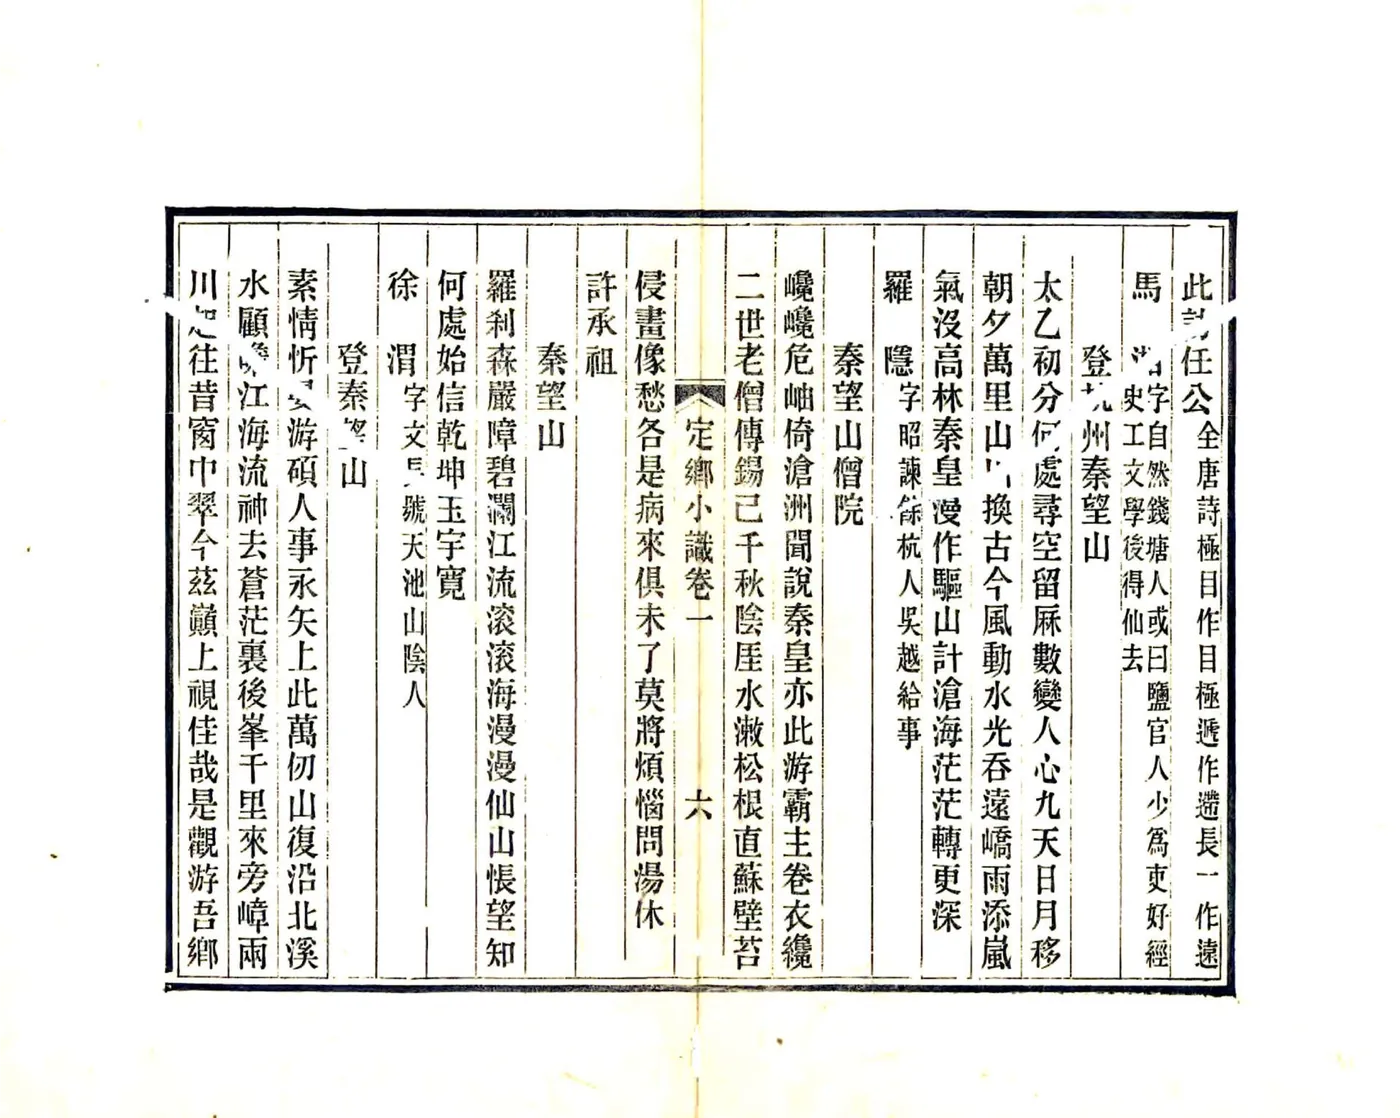 此詩任公全唐詩極目作目極遞作遰長一作遠
馬　湘字自然錢塘人或曰鹽官人少爲吏好經
史工文學後得仙去
登杭州秦望山
太乙初分何處尋空留厤數變人心九天日月移
朝夕萬里山川換古今風動水光吞遠嶠雨添嵐
氣沒高林秦皇漫作驅山計滄海茫茫轉更深
羅　隱字昭諫餘杭人吳越給事
秦望山僧院
巉巉危岫倚滄洲聞說秦皇亦此游霸主卷衣纔
二世老僧傳錫已千秋陰厓水漱松根直蘇壁苔
定鄉小識卷一　六
侵畫像愁各是病來俱未了莫將煩惱問湯休
許承祖
秦望山
羅刹森嚴嶂碧瀾江流滚滚海漫漫仙山悵望知
何處始信乾坤玉宇寬
徐　渭字文長號天池山陰人
登秦望山
素情忻游碩人事永矢上此萬仞山復沿北溪
水顧瞻江海流神去蒼茫裏後峯千里來旁嶂兩
川起往昔窗中翠今茲巔上視佳哉是觀游吾鄉